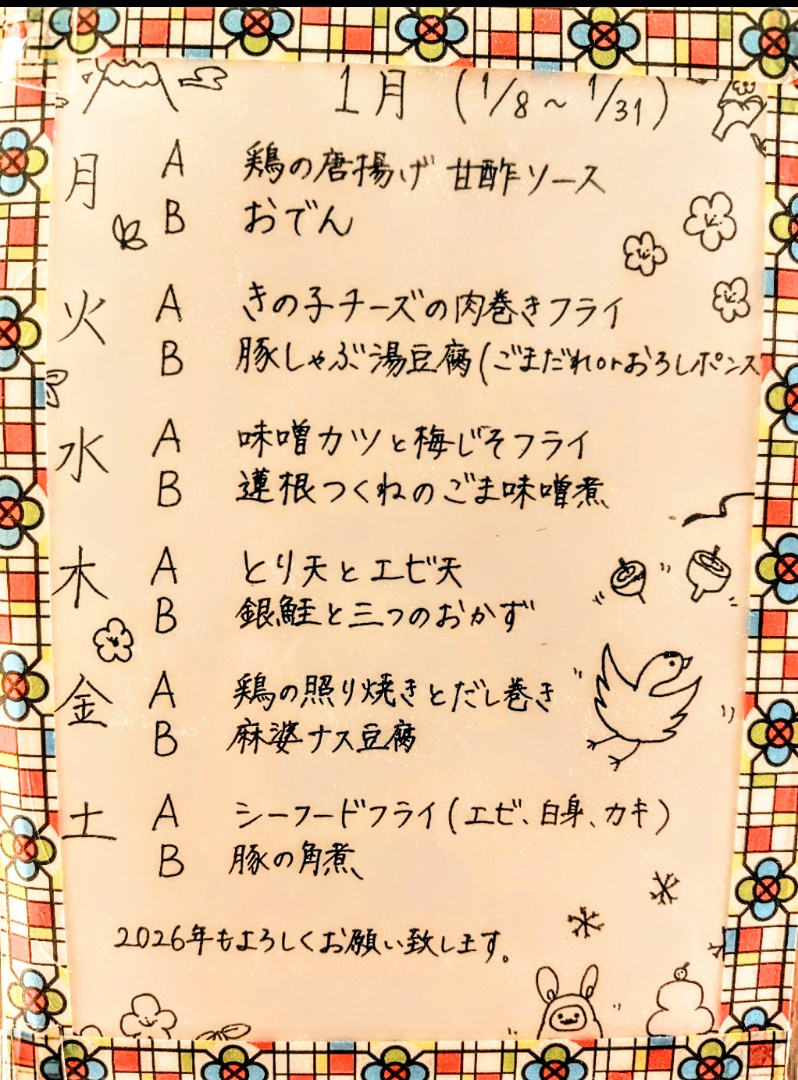 1月 (1/8～1/31)
月 A 鶏の唐揚げ 甘酢ソース
B おでん
火 A きの子チーズの肉巻きフライ
B 豚しゃぶ湯豆腐(ごまだれorおろしポンズ
水 A 味噌カツと梅じそフライ
B 蓮根つくねのごま味噌煮
木 A とり天とエビ天
B 銀鮭と三つのおかず
金 A 鶏の照り焼きとだし巻き
B 麻婆ナス豆腐
土 A シーフードフライ(エビ、白身、カキ)
B 豚の角煮
2026年もよろしくお願い致します。